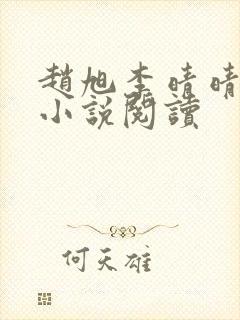 趙旭李晴晴
小說閱讀
何天雄